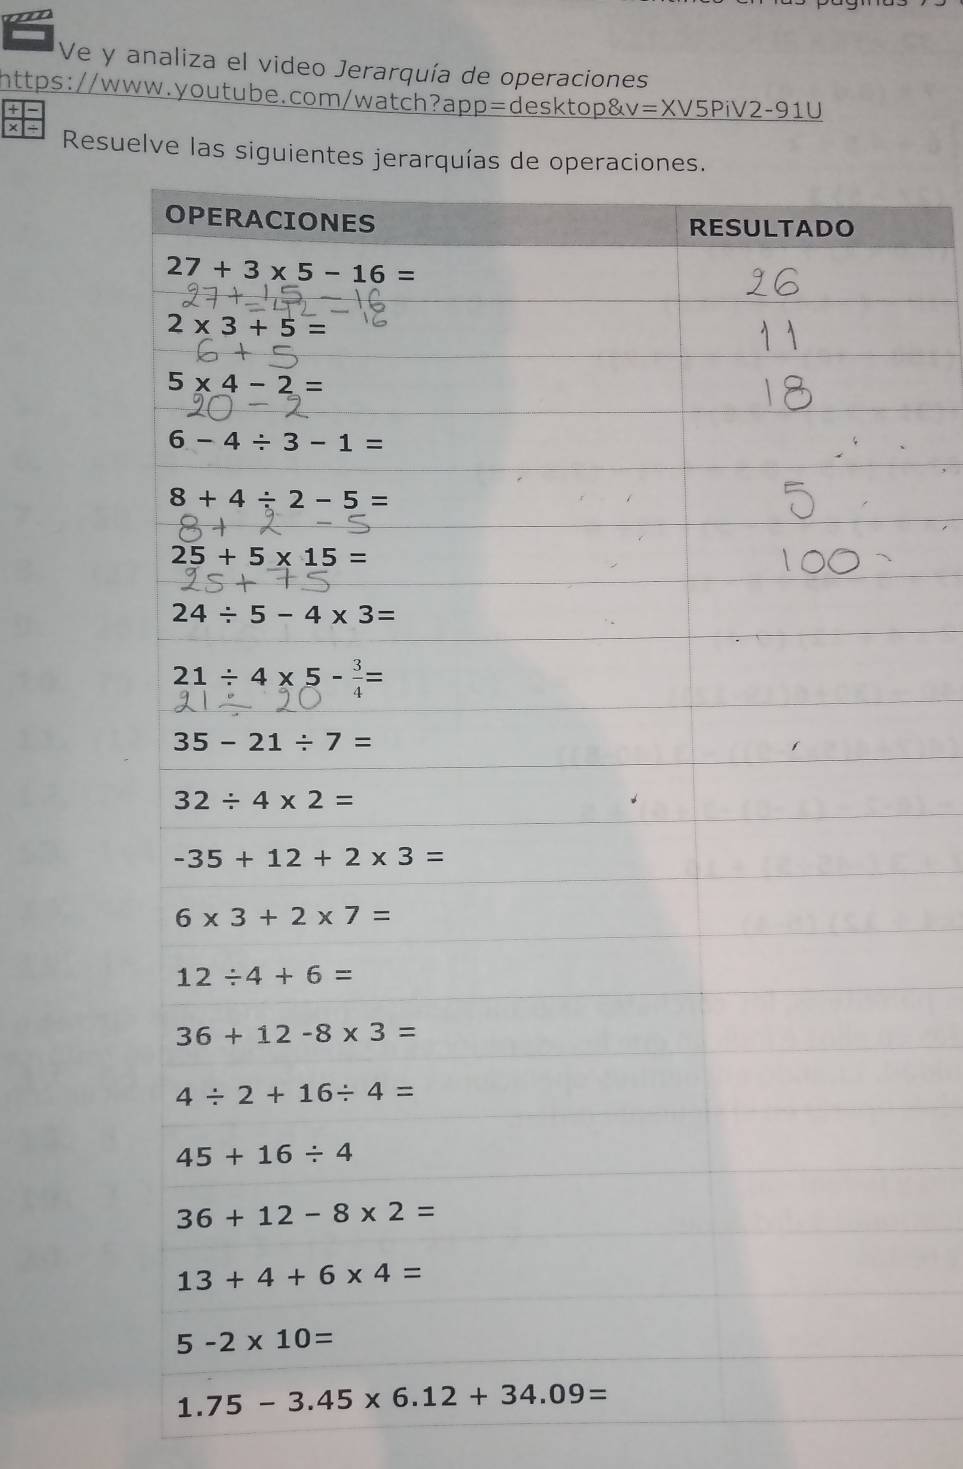 Ve y analiza el video Jerarquía de operaciones
https://www.youtube.com/watch?app=desktop&v=XV5PiV2-91U
Resuelve las siguientes jerarquías de operaciones.
OPERACIONES RESULTADO
27 + 3 x 5 - 16 = 26
27 + 15 - 16
= 42 - 16
2 x 3 + 5 = 11
6 + 5
5 x 4 - 2 = 18
20 - 2
6 - 4 ÷ 3 - 1 =
8 + 4 ÷ 2 - 5 = 5
8 + 2 - 5
25 + 5 x 15 = 100
25 + 75
24 ÷ 5 - 4 x 3=
21 ÷ 4 x 5 - 3/4 =
21 ÷ 20
35 - 21 ÷ 7 =
32 ÷ 4 x 2 =
-35 + 12 + 2 x 3 =
6 x 3 + 2 x 7 =
12 ÷4 + 6 =
36 + 12 -8 x 3 =
4 ÷ 2 + 16÷ 4 =
45 + 16 ÷ 4
36 + 12 - 8 x 2 =
13 + 4 + 6 x 4 =
5 -2 x 10=
1.75 - 3.45 x 6.12 + 34.09=